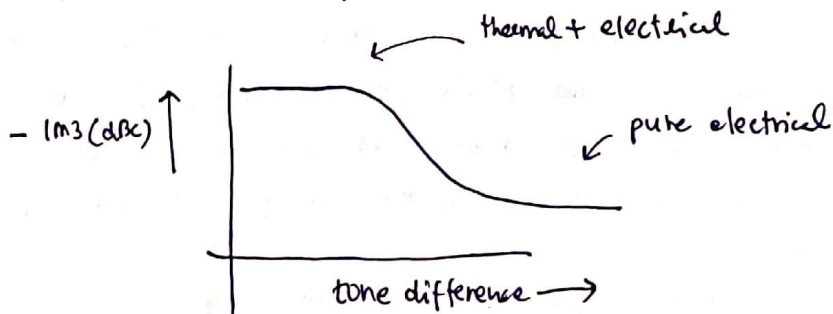 thermal + electrical
- IM3 (dBc)
pure electrical
tone difference